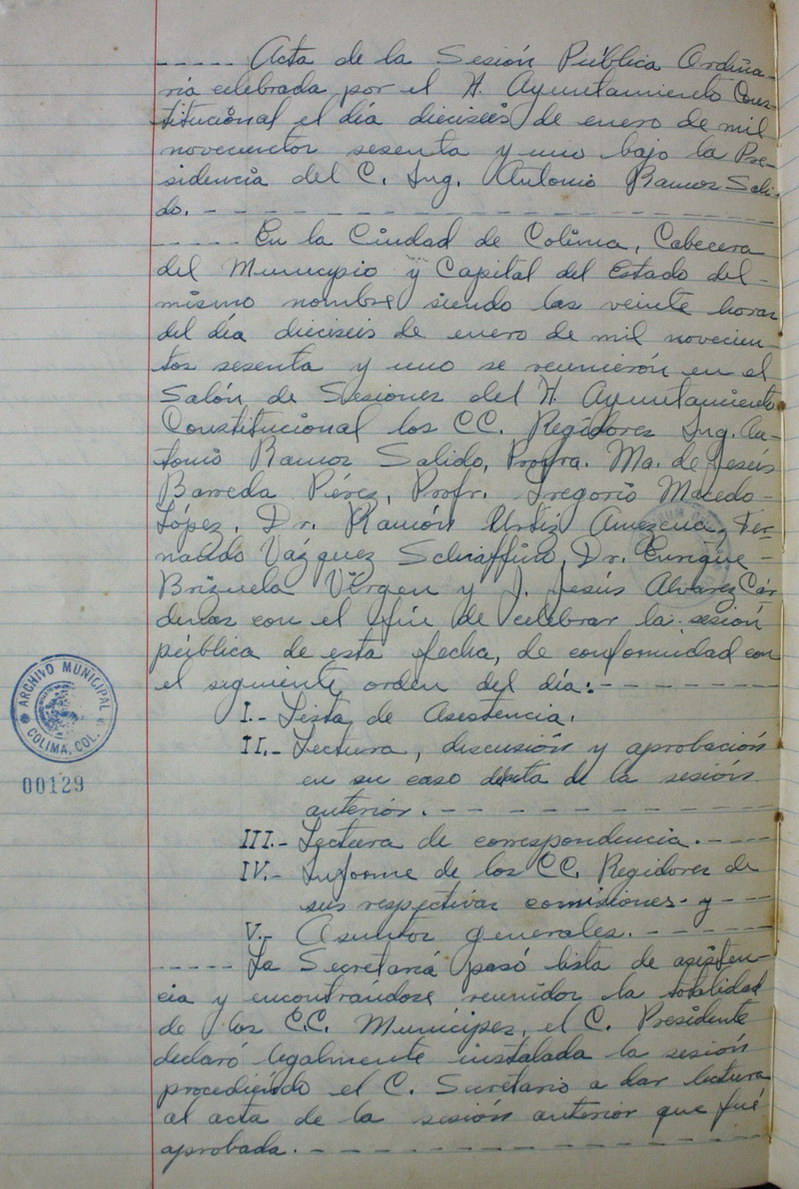 ----- Acta de la Sesión Pública Ordina-
ria celebrada por el H. Ayuntamiento Cons-
titucional el día dieciseis de enero de mil
novecientos sesenta y uno bajo la Pre-
sidencia del C. Ing. Antonio Ramos Sali-
do. - - - - - - - - - - - - - - - -
----- En la Ciudad de Colima, Cabecera
del Municipio y Capital del Estado del -
mismo nombre siendo las veinte horas
del día dieciseis de enero de mil novecien-
tos sesenta y uno se reunierón en el
Salón de Sesiones del H. Ayuntamiento
Constitucional los CC. Regidores Ing. An-
tonio Ramos Salido, Profra. Ma. de Jesús
Barreda Pérez, Profr. Gregorio Macedo -
López, Dr. Ramón Urtiz Amezcua, Fer-
nando Vazquez Schiaffino, Dr. Enrique -
Brizuela Virgen y J. Jesús Alvarez Cár-
denas con el fin de celebrar la sesión
pública de esta fecha, de conformidad con
el siguiente orden del día: - - - - - - -
I.- Lista de Asistencia.
II.- Lectura, discusión y aprobación
en su caso de la sesión
anterior. - - - - - - - - - - -
III.- Lectura de correspondencia. - - - -
IV.- Informe de los CC. Regidores de
sus respectivas comisiones - y - - -
V.- Asuntos generales. - - - - - -
----- La Secretaria pasó lista de asisten-
cia y encontrándose reunidos la totalidad
de los C.C. Munícipes, el C. Presidente
declaró legalmente instalada la sesión
procediendo el C. Secretario a dar lectura
al acta de la sesión anterior que fué
aprobada. - - - - - - - - - - - - -
ARCHIVO MUNICIPAL
COLIMA, COL.
00129